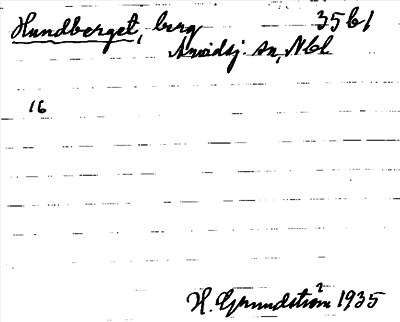 Hundberget, berg 35b1
Arvidsj. sn, Nbl
16
H. Grundström 1935